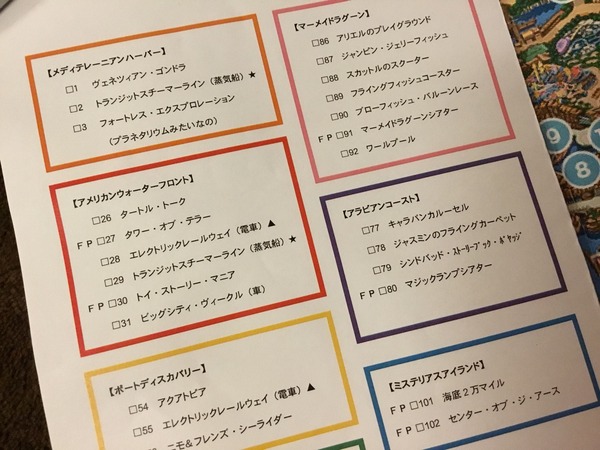 【メディテレーニアンハーバー】
□1 ヴェネツィアン・ゴンドラ
□2 トランジットスチーマーライン（蒸気船）★
□3 フォートレス・エクスプロレーション
（プラネタリウムみたいなの）
【アメリカンウォーターフロント】
□26 タートル・トーク
ＦＰ□27 タワー・オブ・テラー
□28 エレクトリックレールウェイ（電車）▲
□29 トランジットスチーマーライン（蒸気船）★
ＦＰ□30 トイ・ストーリー・マニア
□31 ビッグシティ・ヴィークル（車）
【ポートディスカバリー】
□54 アクアトピア
□55 エレクトリックレールウェイ（電車）▲
ニモ＆フレンズ・シーライダー
【マーメイドラグーン】
□86 アリエルのプレイグラウンド
□87 ジャンピン・ジェリーフィッシュ
□88 スカットルのスクーター
□89 フライングフィッシュコースター
□90 ブローフィッシュ・バルーンレース
ＦＰ□91 マーメイドラグーンシアター
□92 ワールプール
【アラビアンコースト】
□77 キャラバンカルーセル
□78 ジャスミンのフライングカーペット
□79 シンドバッド・ｽﾄｰﾘｰﾌﾞｯｸ・ﾎﾞﾔｯｼﾞ
ＦＰ□80 マジックランプシアター
【ミステリアスアイランド】
ＦＰ□101 海底２万マイル
ＦＰ□102 センター・オブ・ジ・アース
9
8